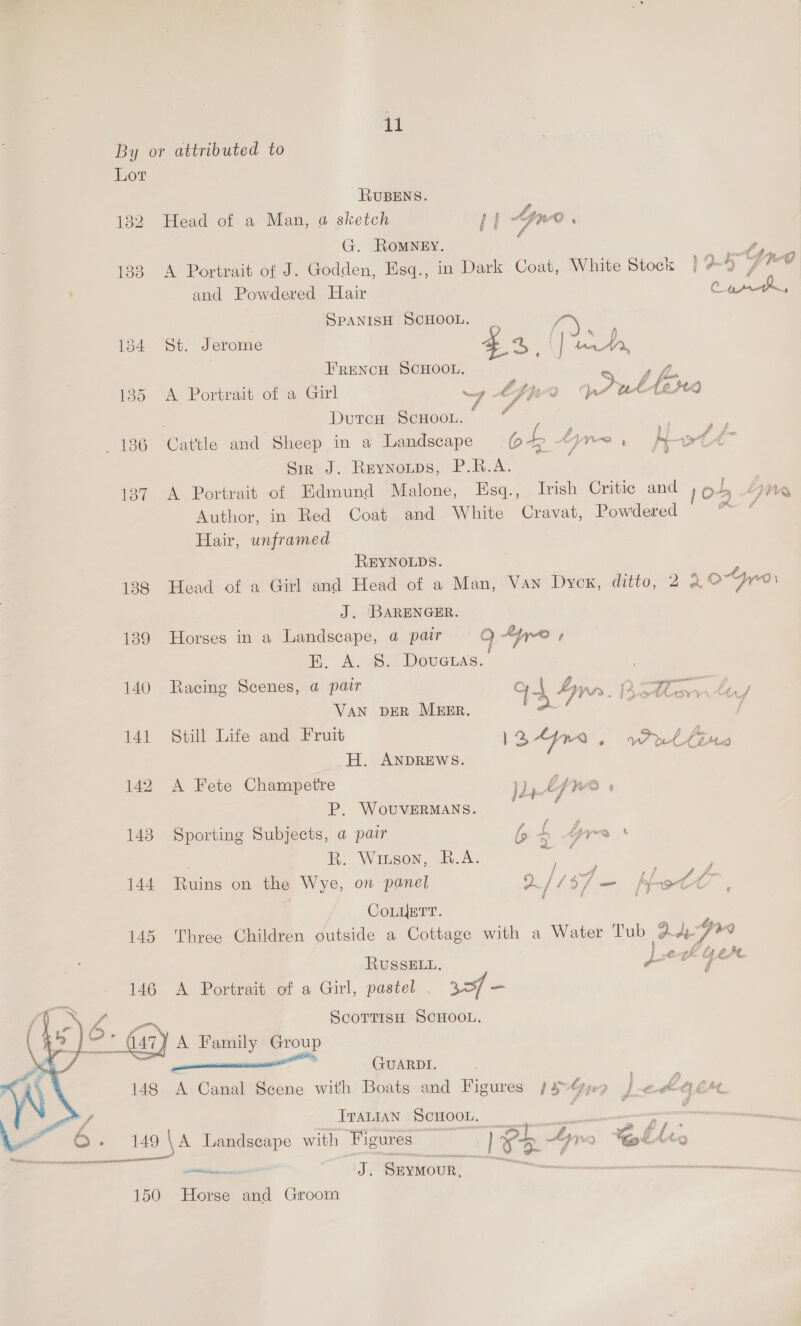 11
By or attributed to
Lot
RUBENS.
132 Head of a Man, a sketch 11 Gns.
G. ROMNEY.
133 A Portrait of J. Godden, Esq., in Dark Coat, White Stock 125 Gns
and Powdered Hair
SPANISH SCHOOL.
134 St. Jerome £3.
FRENCH SCHOOL.
135 A Portrait of a Girl 7 Gns Pullens
DUTCH SCHOOL.
136 Cattle and Sheep in a Landscape 65 Gns, Hott
SIR J. REYNOLDS, P.R.A.
137 A Portrait of Edmund Malone, Esq., Irish Critic and 105 Gns
Author, in Red Coat and White Cravat, Powdered
Hair, unframed
REYNOLDS.
138 Head of a Girl and Head of a Man, VAN DYCK, ditto, 2 20 Gns
J. BARENGER.
139 Horses in a Landscape, a pair 9 Gns
E. A. S. DOUGLAS.
140 Racing Scenes, a pair Gns. Bottomley
VAN DER MEER.
141 Still Life and Fruit 13 Gns. Pullens
H. ANDREWS.
142 A Fete Champetre 12 Gns
P. WOUVERMANS.
143 Sporting Subjects, a pair 65 Gns
R. WILSON, R.A.
144 Ruins on the Wye, on panel 2/15/- Hott
COLLETT.
145 Three Children outside a Cottage with a Water Tub 24 Gns
Ledger
RUSSELL.
146 A Portrait of a Girl, pastel . 35/-
SCOTTISH SCHOOL.
147 A Family Group
GUARDI.
148 A Canal Scene with Boats and Figures 18 Gns Ledger
ITALIAN SCHOOL.
6. 149 A Landscape with Figures Gns
J. SEYMOUR,
150 Horse and Groom